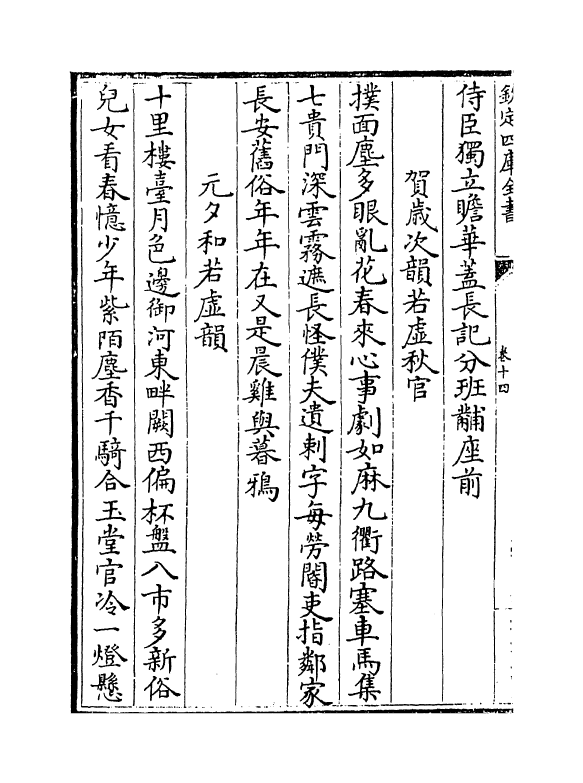 欽定四庫全書
卷十四
侍臣獨立瞻華蓋長記分班黼座前
賀歲次韻若虛秋官
撲面塵多眼亂花春來心事劇如麻九衢路塞車馬集
七貴門深雲霧遮長怪僕夫遺刺字每勞閽吏指鄰家
長安舊俗年年在又是晨雞與暮鴉
元夕和若虛韻
十里樓臺月色邊御河東畔闕西偏杯盤八市多新俗
兒女看春憶少年紫陌塵香千騎合玉堂官冷一燈懸